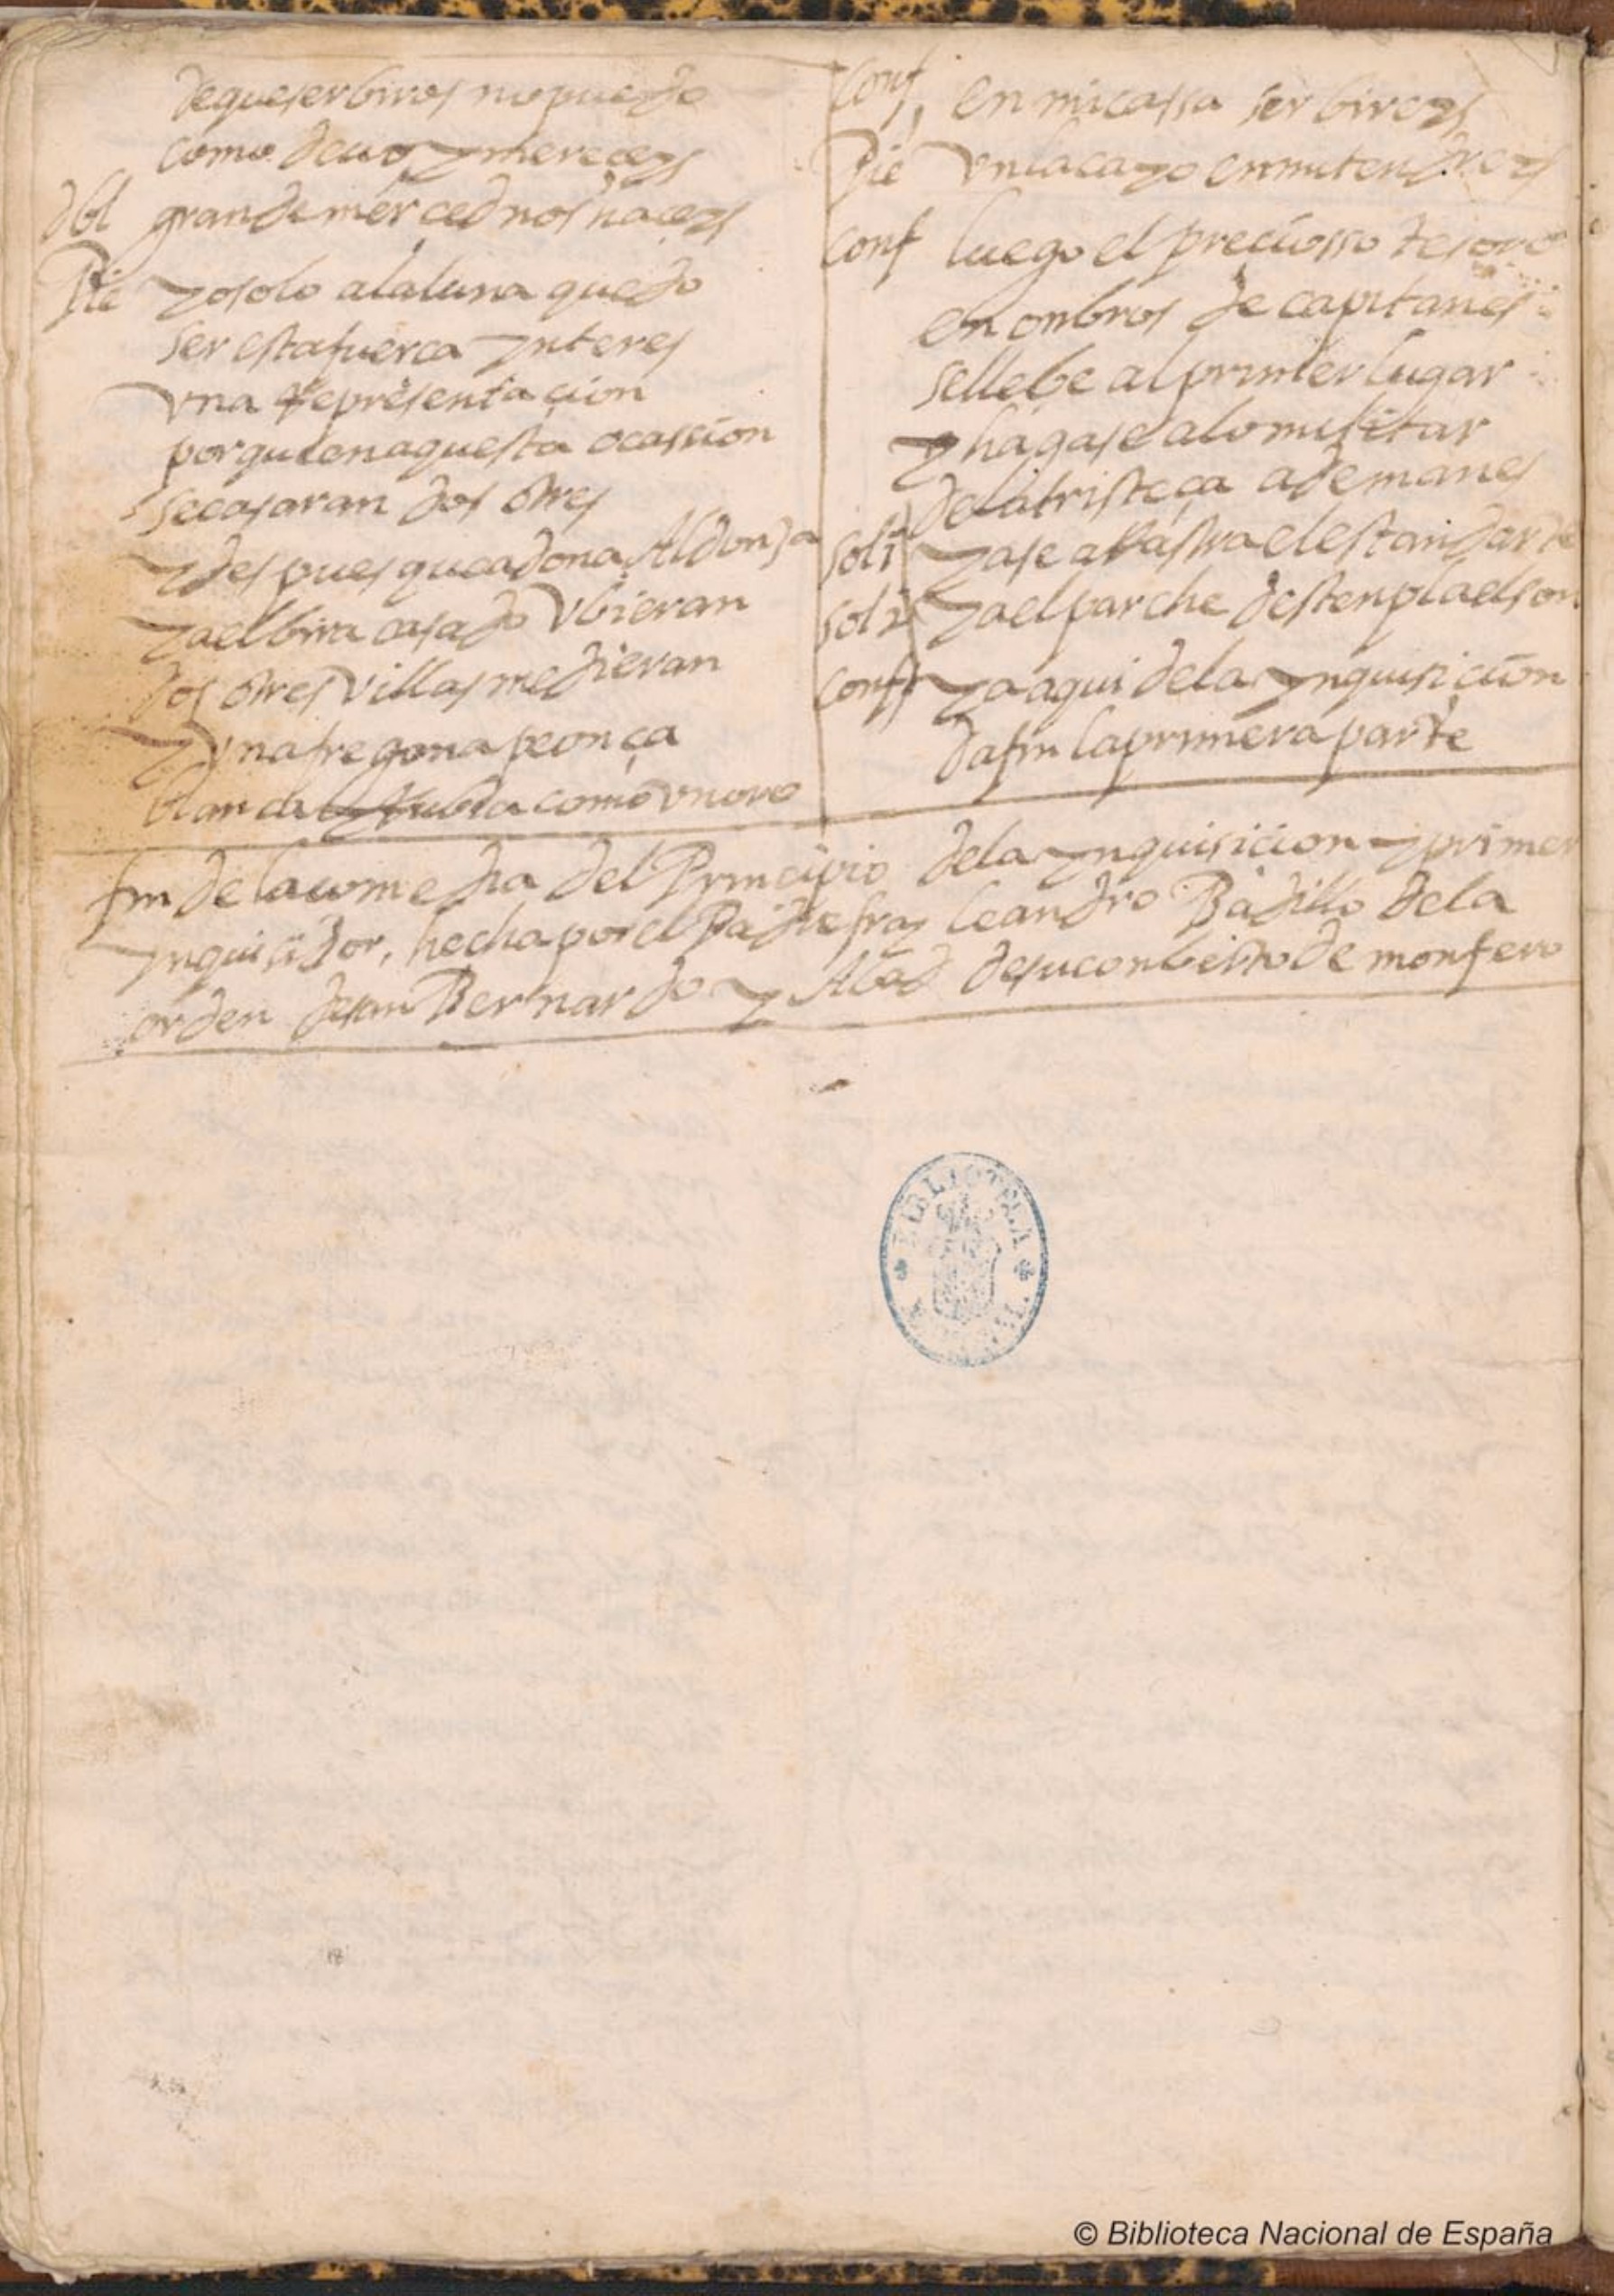 de que serbiros no puedo
como deuo y mereceys
dol grande mer ced nos haceys
Pie yo solo a la luna quedo
ser esta fuerca ynteres
vna representacion
por que en aquesta ocassion
se casaran dos o tres
y despues que a dona Aldonça
ya elbira casado Vbieran
dos o tres Villas me dieran
y vna fregona peonça
blanca y rubia como vn oro
Conf. en mi cassa ser bireys
Pie vn lacayo en mi tendreys
Conf luego el precïosso tesoro
en onbros de capitanes
se llebe al primer lugar
y hagase a lo militar
de la tristeça ademanes
Sol 1 ya se aRastra el estandarte
Sol 2 ya el parche destenpla el son
Conf y a aqui de la ynquisicion
da fin la primera parte
fin de la comedia del Principio de la ynquisicion y primer
ynquisidor, hecha por el Padre fray leandro Badillo de la
orden de san Bernardo y Abad de su conbento de monfero
BIBLIOTECA
© Biblioteca Nacional de España